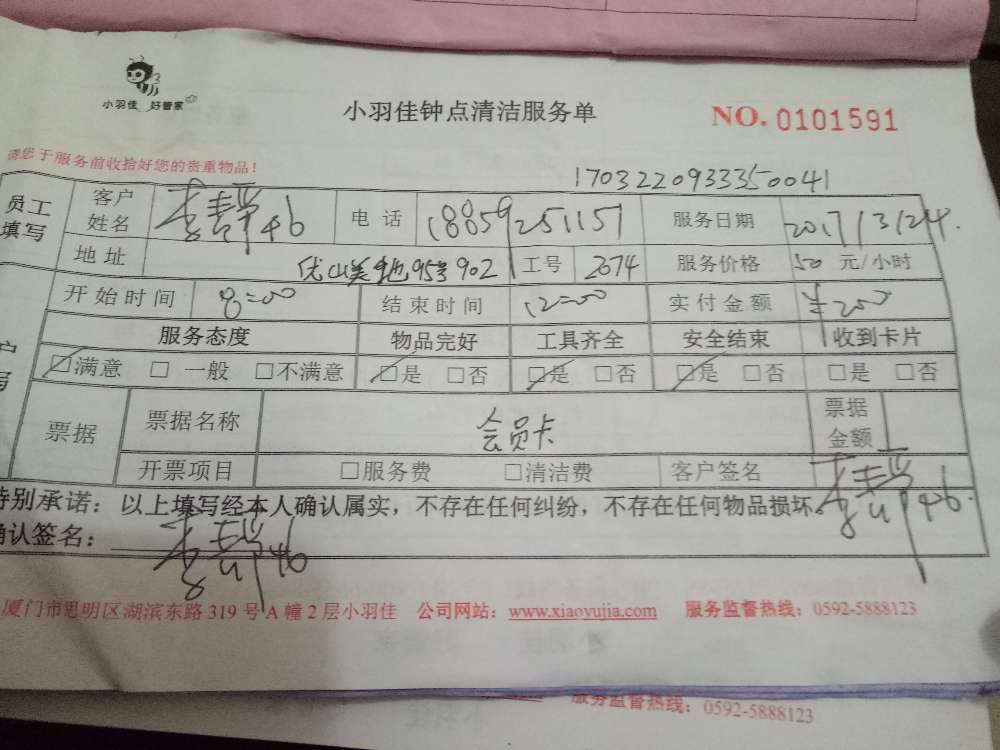 小羽佳 好管家
小羽佳钟点清洁服务单
NO. 0101591
请您于服务前收拾好您的贵重物品！
1703220933350041
员工填写 客户姓名 46 电话 18859251151 服务日期 2017/3/24.
地址 优山美地95号902 工号 2674 服务价格 50 元/小时
开始时间 8=00 结束时间 12=00 实付金额 ¥200
服务态度 物品完好 工具齐全 安全结束 收到卡片
☑满意 □ 一般 □不满意 ☑是 □否 ☑是 □否 ☑是 □否 □是 □否
票据 票据名称 会员卡 票据金额
开票项目 □服务费 □清洁费 客户签名 46
特别承诺：以上填写经本人确认属实，不存在任何纠纷，不存在任何物品损坏。
确认签名： 46
厦门市思明区湖滨东路 319 号 A 幢 2 层小羽佳 公司网站：www.xiaoyujia.com 服务监督热线：0592-5888123
服务监督热线：0592-5888123